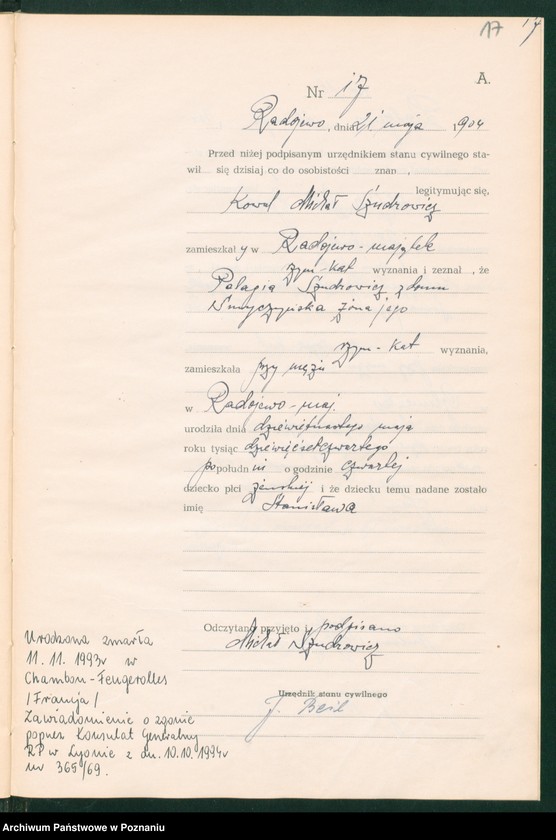 17
17
A.
Nr 17
Radojewo, dnia 21 maja 1904
Przed niżej podpisanym urzędnikiem stanu cywilnego sta-
wił się dzisiaj co do osobistości znan ,
legitymując się,
Kowal Michał Szudrowicz
zamieszkały w Radojewo-majątek
rzym-kat wyznania i zeznał , że
Pelagia Szudrowicz z domu
żona jego
rzym-kat wyznania,
zamieszkała przy mężu
w Radojewo-maj.
urodziła dnia dziewiętnastego maja
roku tysiąc dziewięćsetczwartego
popołudniu o godzinie czwartej
dziecko płci żeńskiej i że dziecku temu nadane zostało
imię Stanisława
Odczytano, przyjęto i podpisano
Michał Szudrowicz
Urzędnik stanu cywilnego
J. Beil
Urodzona zmarła
11.11.1993r w
Chambon-Feugerolles
/Francja/
Zawiadomienie o zgonie
poprzez Konsulat Generalny
RP w Lyonie z dn. 10.10.1994r
nr 365/69.
Archiwum Państwowe w Poznaniu